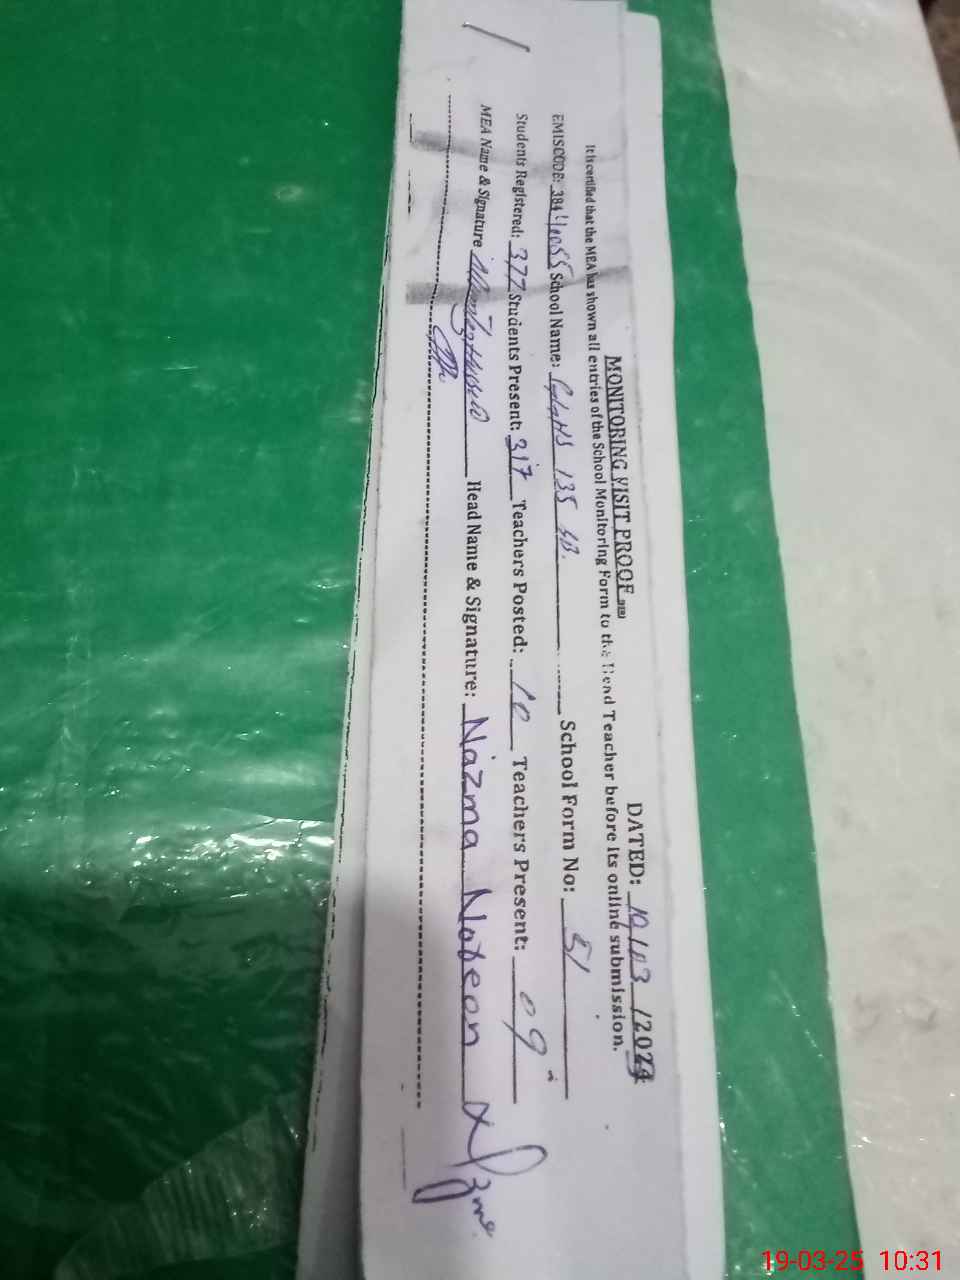 MONITORING VISIT PROOF
DATED: 19/03/2024
It is certified that the MEA has shown all entries of the School Monitoring Form to the Head Teacher before its online submission.
EMISCODE: 38440055 School Name: 135 SB. School Form No: 51
Students Registered: 377 Students Present: 317 Teachers Posted: 10 Teachers Present: 09
MEA Name & Signature Head Name & Signature: Nazma Noreen
19-03-25 10:31